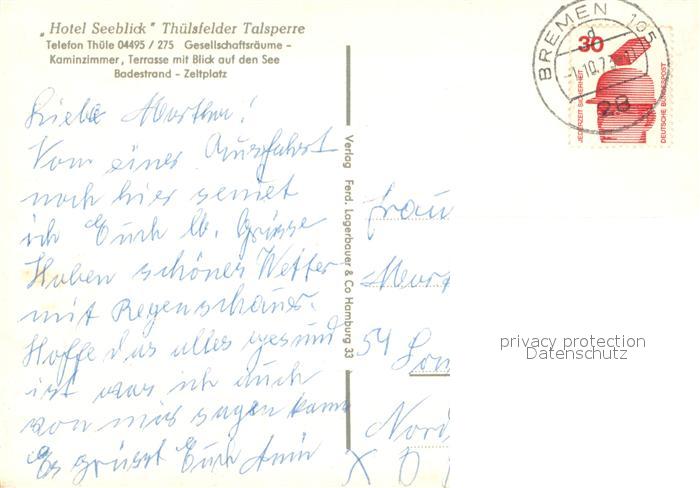 „Hotel Seeblick" Thülsfelder Talsperre
Telefon Thüle 04495 / 275 Gesellschaftsräume -
Kaminzimmer, Terrasse mit Blick auf den See
Badestrand - Zeltplatz
Liebe Martha!
Von einer Ausfahrt
noch hier sendet
ich Euch lb. Grüsse
Haben schönes Wetter
mit Regenschauer.
Hoffe das alles gesund
ist was ich auch
von mir sagen kann
Es grüsst Euch
Verlag Ferd. Lagerbauer & Co Hamburg 33
BREMEN 105
28
30
JEDERZEIT SICHERHEIT
DEUTSCHE BUNDESPOST
Frau
54
privacy protection
Datenschutz